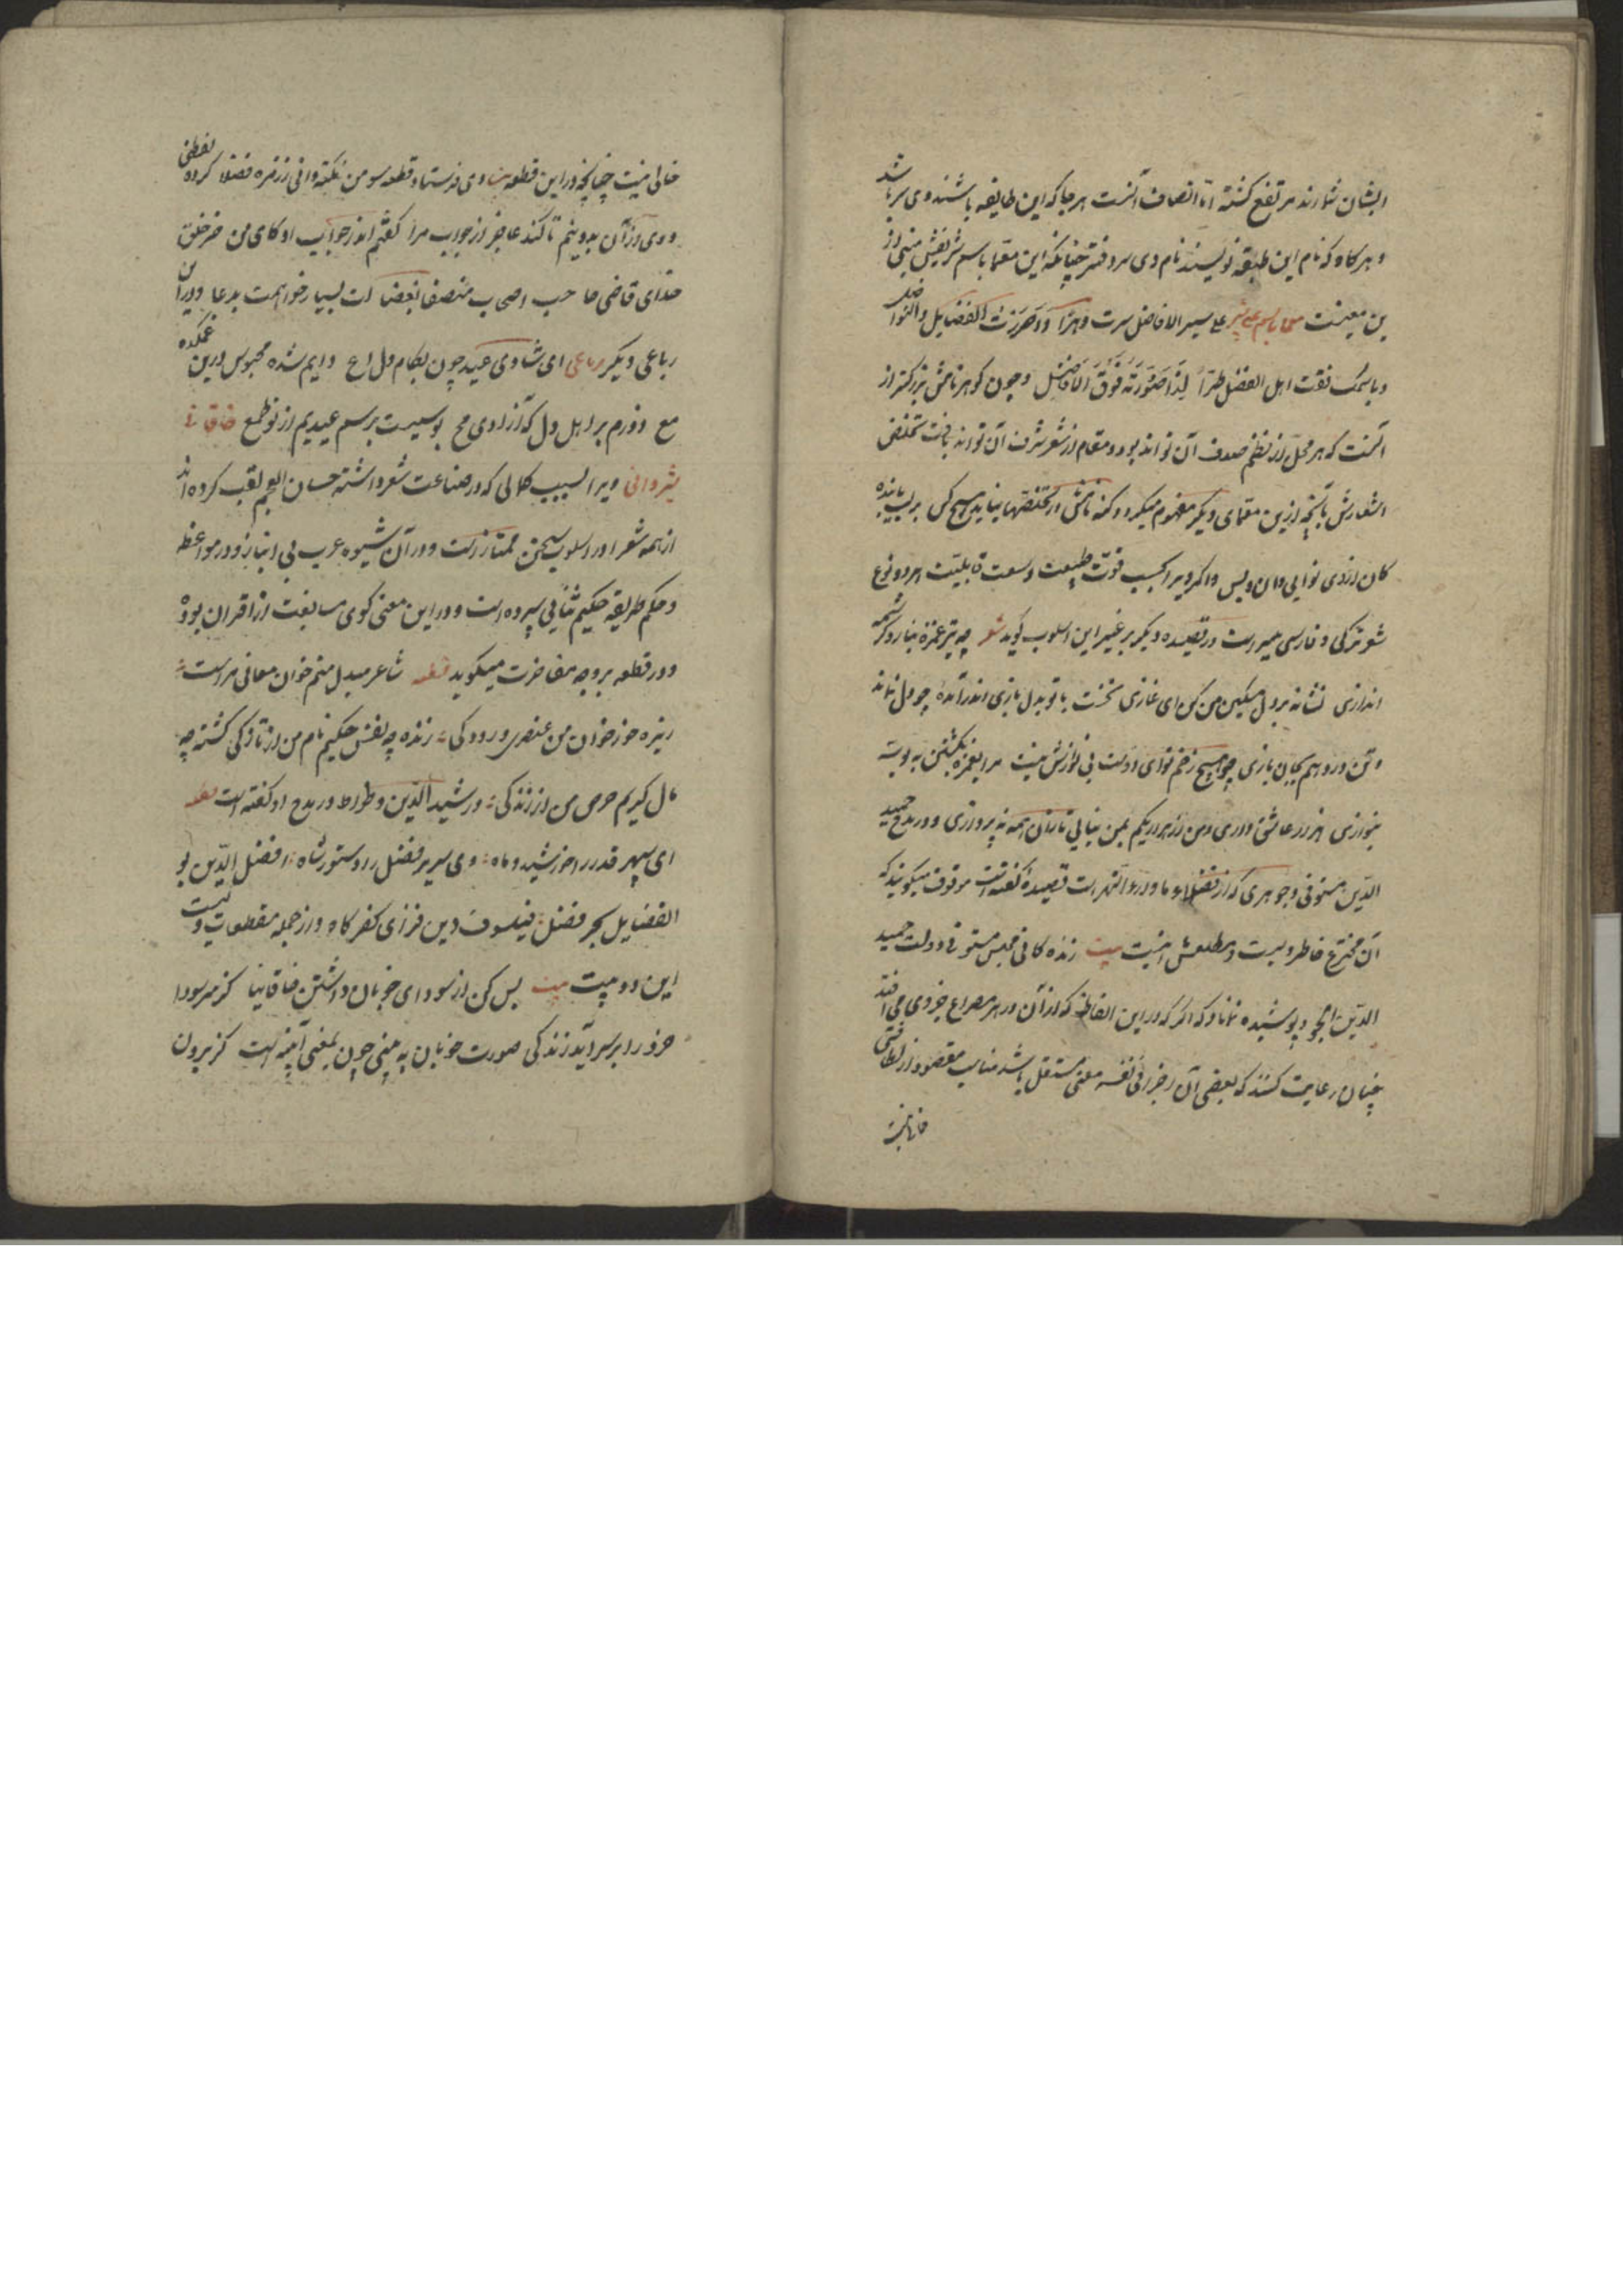 ایشان شمارند مرتفع گشته اما انصاف آنست هرجا که این طایفه باشند وی سر باشد
و هرگاه که نام این طبقه نویسند نام وی سر دفتر چنانکه این معما باسم شریفش منبی از
ین معنیست معما باسم علی شیر علی سیر الافاضل سرت دهرا و احرزت الفضایل والفواضل
وباسمک فقت اهل الفضل طرا لذا صورته فوق الافاضل وچون گوهر نامش بزرگتر از
آنست که هر محل از نظم صدف آن تواند بود و مقام از شعر شرف آن تواند یافت تخلص
اشعارش بآنچه ازین معمای دیگر مفهوم میگردد کنه نامش از تخلصها بیابد هیچ کس
کان از وی نوایی دان و بس و اگر ویرا بحسب قوت طبیعت و سعت قابلیت هر دو نوع
شعر ترکی و فارسی میسرست در قصیده دیگر بر غیر این اسلوب گوید شعر چه تیر غمزه بنا و کرشمه
اندازی نشانه بر دل مسکین من کن ای غازی نخست با تو بدل بازی اندر آمده چو دل نماند
وتن در دهم بجان بازی چو هیچ زخم تو ای دوست بی نوازش نیست مرا بغمزه بکشتن به بوسه
بنوازی هزار عاشق داری و من از هزار یکم بمن نیایی تا زان همه نه پردازی و در مدح حمید
الدین مستوفی و جوهری که از فضلاء ماوراء النهرست قصیدهٔ گفتست موقوف میگویند که
آن مخترع خاطر ویست و مطلعش اینست بیت زنده کانی مجلس مستوفی و دولت حمید
الدین الجو و پوشیده نماند که اگر که در این الفاظ که از آن در هر مصراع جزوی می افتد
چنان رعایت کنند که بعضی آن اجزا فی نفسه معنی مستقل باشد مناسب مقصود از لطافتی
خالی نیست
خالی نیست چنانچه در این قطعه وی فرستاد قطعه سو من نکته دانی ز زمره فضلا کرده لفظی
و وی از آن بدو نیم تا کند عاجز از جواب مرا گفتم اندر جواب او کای من ضر خلق
خدای قاضی حاجب اصحاب منصف بعضا ات بسیار خواهمت بدعا و ورا آن
رباعی دیگر رباعی ای شادی عید چون بکام دل اع دایم شده محبوس درین غمکده
مع دورم بر اهل دل که آزادی مح بوسیست برسم عیدیم از تو طمع خاقانی
شروانی ویرا بسبب کمالی که در صناعت شعر داشته حسان العجم لقب کرده اند
از همه شعرا در اسلوب سخن ممتازست و در آن شیوه غریب بی انباز و در مواعظ
و حکم طریقه حکیم سنایی سپرده است و در این معنی گوی مسابقت از اقران بوده
و در قطعه بر وجه مفاخرت میگوید قطعه شاعر مبدل منم خوان معانی مراست
ریزه خور خوان من عنصری و رودکی زنده چه نفس حکیم نام من از تازگی گشته چه
مال کریم حرص من از زندگی و رشید الدین وطواط در مدح او گفته است قطعه
ای سپهر قدر را خورشید و ماه وی سریر فضل را دستور شاه افضل الدین بو
الفضایل بحر فضل فیلسوف دین فزای کفر کاه و از جمله مقطعات ویست
این دو بیت بیت بس کن از سودای خوبان داشتن خاقانیا کز سر سودا
خرد را بر سر آید زندگی صورت خوبان به بینی چون بمعنی آینه است کز برون